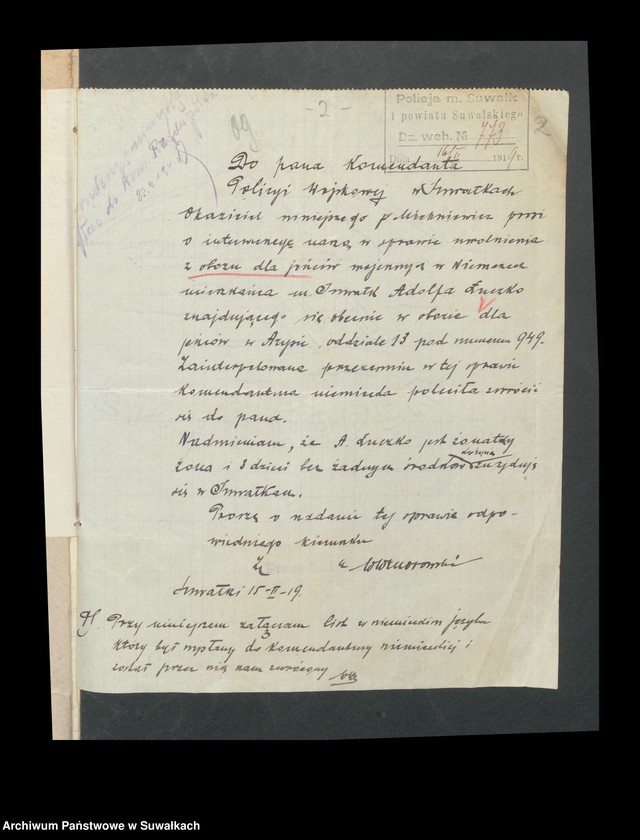 - 2 -
Policja m. Suwałk
i powiatu Suwalskiego
Dz. wch. № 773
Dnia 16/II 1919 r.
2
Do pana Komendanta
Policyi Wojskowej w Suwałkach
Okaziciel niniejszego p. Michniewicz prosi
o interwencyę naszą w sprawie uwolnienia
z obozu dla jeńców wojennych w Niemczech
mieszkańca m. Suwałk Adolfa Łuczko
znajdującego się obecnie w obozie dla
jeńców w Arysie, oddziale 13 pod numerem 949.
Zainterpelowana przezemnie w tej sprawie
Komendantura niemiecka poleciła zwrócić
się do pana.
Nadmieniam, że A. Łuczko jest żonaty
żona i 3 dzieci bez żadnych środków znajdują
się w Suwałkach.
Proszę o nadanie tej sprawie odpo-
wiedniego kierunku
Suwałki 15-II-19.
Przy niniejszem załączam list w niemieckim języku
który był wysłany do Komendantury niemieckiej i
został przez nią nam zwrócony
Archiwum Państwowe w Suwałkach